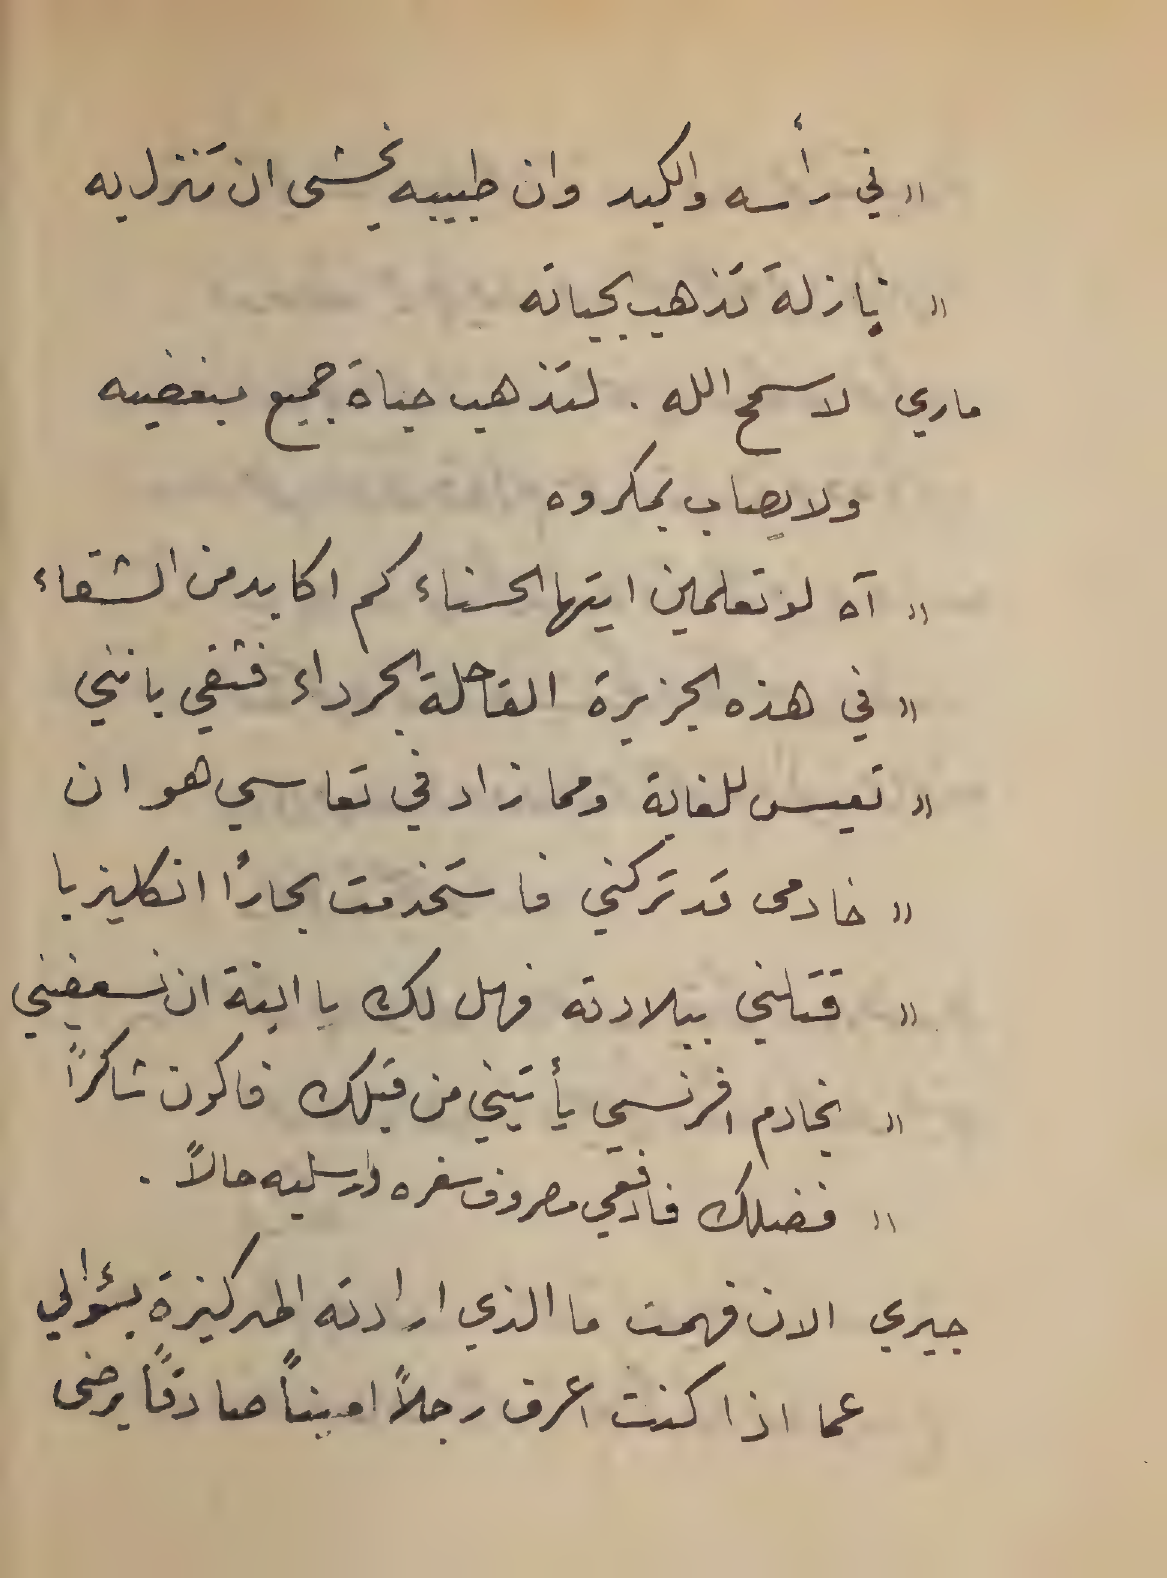 « في رأسه والكبد وان طبيبه يخشى ان تنزل به
« نازلة تذهب بحياته
ماري لا سمح الله . لتذهب حياة جميع مبغضيه
ولا يصاب بمكروه
« آه لو تعلمين ايتها الحسناء كم اكابد من الشقاء
« في هذه الجزيرة القاحلة الجرداء فثقي بانني
« تعيس للغاية ومما زاد في تعاسي هو ان
« خادمي قد تركني فاستخدمت بحارًا انكليزيا
« قتلني ببلادته فهل لك يا ابنة ان تسعفيني
« بخادم افرنسي يأتيني من قبلك فاكون شاكرًا
« فضلك فادفعي مصروف سفره وارسليه حالاً .
جيري الان فهمت ما الذي ارادته المركيزة بسؤالي
عما اذا كنت اعرف رجلاً اميناً صادقاً يرضى